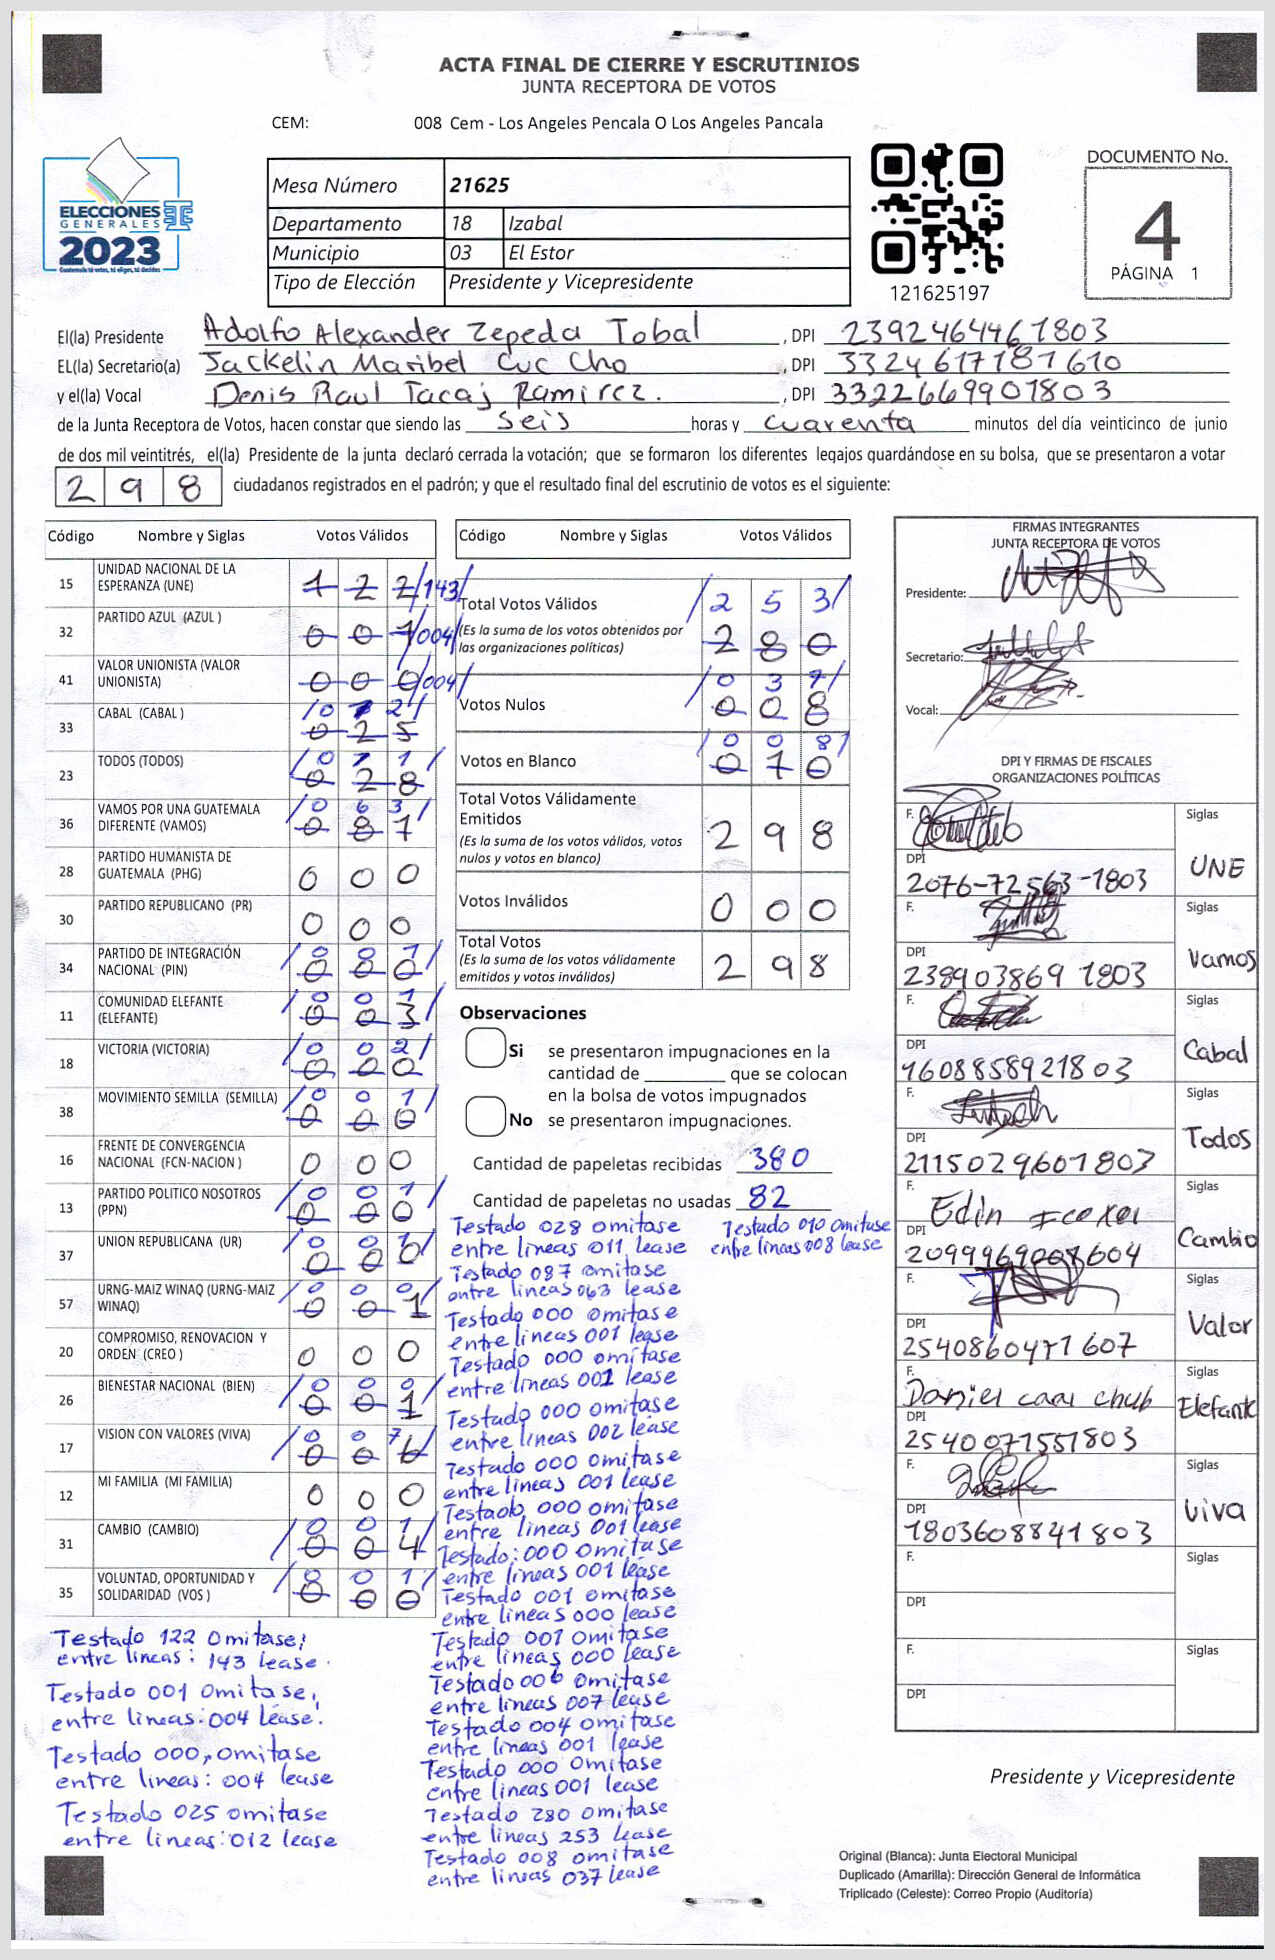 ACTA FINAL DE CIERRE Y ESCRUTINIOS
JUNTA RECEPTORA DE VOTOS
CEM: 008 Cem - Los Angeles Pencala O Los Angeles Pancala
ELECCIONES
GENERALES
2023
Guatemala tú votas, tú eliges, tú decides
Mesa Número 21625
Departamento 18 Izabal
Municipio 03 El Estor
Tipo de Elección Presidente y Vicepresidente
121625197
DOCUMENTO No.
4
PÁGINA 1
El(la) Presidente Adolfo Alexander Zepeda Tobal, DPI 2392464461803
EL(la) Secretario(a) Jackelin Maribel Cuc Cho, DPI 3324617181610
y el(la) Vocal Denis Raul Tacaj Ramirez., DPI 3322669901803
de la Junta Receptora de Votos, hacen constar que siendo las seis horas y cuarenta minutos del día veinticinco de junio
de dos mil veintitrés, el(la) Presidente de la junta declaró cerrada la votación; que se formaron los diferentes legajos guardándose en su bolsa, que se presentaron a votar
298 ciudadanos registrados en el padrón; y que el resultado final del escrutinio de votos es el siguiente:
Código Nombre y Siglas Votos Válidos
15 UNIDAD NACIONAL DE LA ESPERANZA (UNE) 122 /143/
32 PARTIDO AZUL (AZUL ) 001 /004/
41 VALOR UNIONISTA (VALOR UNIONISTA) 000 /004/
33 CABAL (CABAL ) /012/ 025
23 TODOS (TODOS) /011/ 028
36 VAMOS POR UNA GUATEMALA DIFERENTE (VAMOS) /063/ 087
28 PARTIDO HUMANISTA DE GUATEMALA (PHG) 000
30 PARTIDO REPUBLICANO (PR) 000
34 PARTIDO DE INTEGRACIÓN NACIONAL (PIN) /001/ 000
11 COMUNIDAD ELEFANTE (ELEFANTE) /001/ 003
18 VICTORIA (VICTORIA) /002/ 000
38 MOVIMIENTO SEMILLA (SEMILLA) /001/ 000
16 FRENTE DE CONVERGENCIA NACIONAL (FCN-NACION ) 000
13 PARTIDO POLITICO NOSOTROS (PPN) /001/ 000
37 UNION REPUBLICANA (UR) /001/ 000
57 URNG-MAIZ WINAQ (URNG-MAIZ WINAQ) /000/ 001
20 COMPROMISO, RENOVACION Y ORDEN (CREO ) 000
26 BIENESTAR NACIONAL (BIEN) /000/ 001
17 VISION CON VALORES (VIVA) /007/ 006
12 MI FAMILIA (MI FAMILIA) 000
31 CAMBIO (CAMBIO) /001/ 004
35 VOLUNTAD, OPORTUNIDAD Y SOLIDARIDAD (VOS ) /001/ 000
Testado 122 Omitase;
entre lineas: 143 lease.
Testado 001 Omitase,
entre lineas: 004 lease.
Testado 000, omitase
entre lineas: 004 lease
Testado 025 omitase
entre lineas: 012 lease
Código Nombre y Siglas Votos Válidos
Total Votos Válidos /253/
(Es la suma de los votos obtenidos por las organizaciones políticas) 280
Votos Nulos /037/ 008
Votos en Blanco /008/ 010
Total Votos Válidamente Emitidos
(Es la suma de los votos válidos, votos nulos y votos en blanco) 298
Votos Inválidos 000
Total Votos
(Es la suma de los votos válidamente emitidos y votos inválidos) 298
Observaciones
Si se presentaron impugnaciones en la
cantidad de ________ que se colocan
en la bolsa de votos impugnados
No se presentaron impugnaciones.
Cantidad de papeletas recibidas 380
Cantidad de papeletas no usadas 82
Testado 028 omitase
entre lineas 011 lease
Testado 087 omitase
entre lineas 063 lease
Testado 000 omitase
entre lineas 001 lease
Testado 000 omitase
entre lineas 001 lease
Testado 000 omitase
entre lineas 002 lease
Testado 000 omitase
entre lineas 001 lease
Testado 000 omitase
entre lineas 001 lease
Testado: 000 omitase
entre lineas 001 lease
Testado 001 omitase
entre lineas 000 lease
Testado 001 omitase
entre lineas 000 lease
Testado 006 omitase
entre lineas 007 lease
Testado 004 omitase
entre lineas 001 lease
Testado 000 omitase
entre lineas 001 lease
Testado 280 omitase
entre lineas 253 lease
Testado 008 omitase
entre lineas 037 lease
Testado 010 omitase
entre lineas 008 lease
FIRMAS INTEGRANTES
JUNTA RECEPTORA DE VOTOS
Presidente:
Secretario:
Vocal:
DPI Y FIRMAS DE FISCALES
ORGANIZACIONES POLÍTICAS
F. Siglas
DPI 2076-72563-1803 UNE
F. Siglas
DPI 238903869 1803 Vamos
F. Siglas
DPI 1608858921803 Cabal
F. Siglas
DPI 2115029601803 Todos
F. Edin Siglas
DPI 2099969008604 Cambio
F. Siglas
DPI 2540860471607 Valor
F. Daniel caal chub Siglas
DPI 2540071551803 Elefante
F. Siglas
DPI 1803608841803 Viva
F. Siglas
DPI
F. Siglas
DPI
Presidente y Vicepresidente
Original (Blanca): Junta Electoral Municipal
Duplicado (Amarilla): Dirección General de Informática
Triplicado (Celeste): Correo Propio (Auditoría)